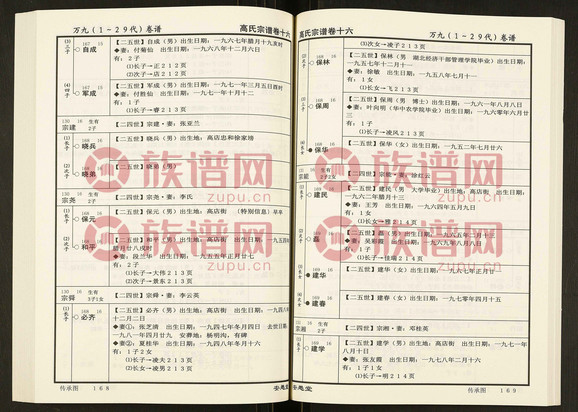 万九(1-29代)卷谱
高氏宗谱卷十六
(3)三子
167 15
自成
【二五世】自成(男)出生日期:一九六七年腊月十九亥时
◆妻:付菊仙 出生日期:一九六八年十二月六日
有:2子
(1)长子→正212页
(2)次子→店212页
(4)四子
168 16
军成
【二五世】军成(男)出生日期:一九七一年三月五日酉时
◆妻:付胜威 出生日期:一九七一年十月十二
有:1子
(1)长子→睿213页
130 16 生有
宗建 2子
【二四世】宗建·妻:张亚兰
(1)长子
168 16
晓兵
【二五世】晓兵(男)出生地:高店忠和徐家塆
(2)次子
168 16
晓弟
【二五世】晓弟(男)
130 16 生有
宗尧 2子
【二四世】宗尧·妻:李氏
(1)长子
168 16
保元
【二五世】保元(男)出生地:高店街 (特别信息)早卒
(2)次子
168 16
和平
【二五世】和平(男)出生地:高店街 出生日期:一九五四年
腊月廿八戌时
◆妻:段兰华 出生日期:一九五五年正月廿七
有:2子
(1)长子→大伟213页
(2)次子→景东213页
130 16 生有
宗舜 3子1女
【二四世】宗舜·妻:李云英
(1)长子
168 16
必齐
【二五世】必齐(男)出生地:高店街 出生日期:一九四八年
十二月二日
◆妻①:张芝清 出生日期:一九四七年冬月四日 去世日期:
一九八一年四月廿九 安葬地:杨明沟,有碑
◆妻②:夏桂华 出生日期:一九四八年冬月十六
有:1子2女
(1)长子→凌大213页
(2)长子→凌男213页
传承图 168
安惠堂
高氏宗谱卷十六
万九(1-29代)卷谱
(3)次女→凌子213页
168 16
保林
【二五世】保林(男 湖北经济干部管理学院毕业)出生日期:
一九五七年十二月十一
◆妻:徐敏 出生日期:一九五八年七月十一
有:1女
(1)长女→飞213页
168 16
保周
【二五世】保周(男 博士)出生日期:一九六一年八月八日
◆妻:叶向明(华中农学院毕业)出生日期:一九六〇年六月廿
三
有:1子
(1)长子→凌风213页
168 16
保华
【二五世】保华(女)出生日期:一九五二年七月廿六
【二四世】宗能·妻:徐红云
169 16
建民
【二五世】建民(男 大学毕业)出生地:高店板 出生日期:一
九六二年腊月十三
◆妻:王芳 出生日期:一九六四年五月九日
有:1女
(1)长女→雅214页
169 16
磊
◆妻:吴彩霞
有:1子
(1)长子→佳瑞214页
169 16
建华
【二五世】建华(女)出生日期:一九六七年正月廿
169 16
建春
【二五世】建春(女)出生日期:一九七〇年四月十五
宗湘
【二四世】宗湘·妻:邓桂英
169 16
建学
【二五世】建学(男)出生地:高店街 出生日期:一九七一年
八月十日
◆妻:张友霞 出生日期:一九七八年二月十六
有:1子1女
(1)长子→明214页
传承图 169
族谱网
zupu.cn
族谱网
zupu.cn
族谱网
zupu.cn
族谱网
zupu.cn